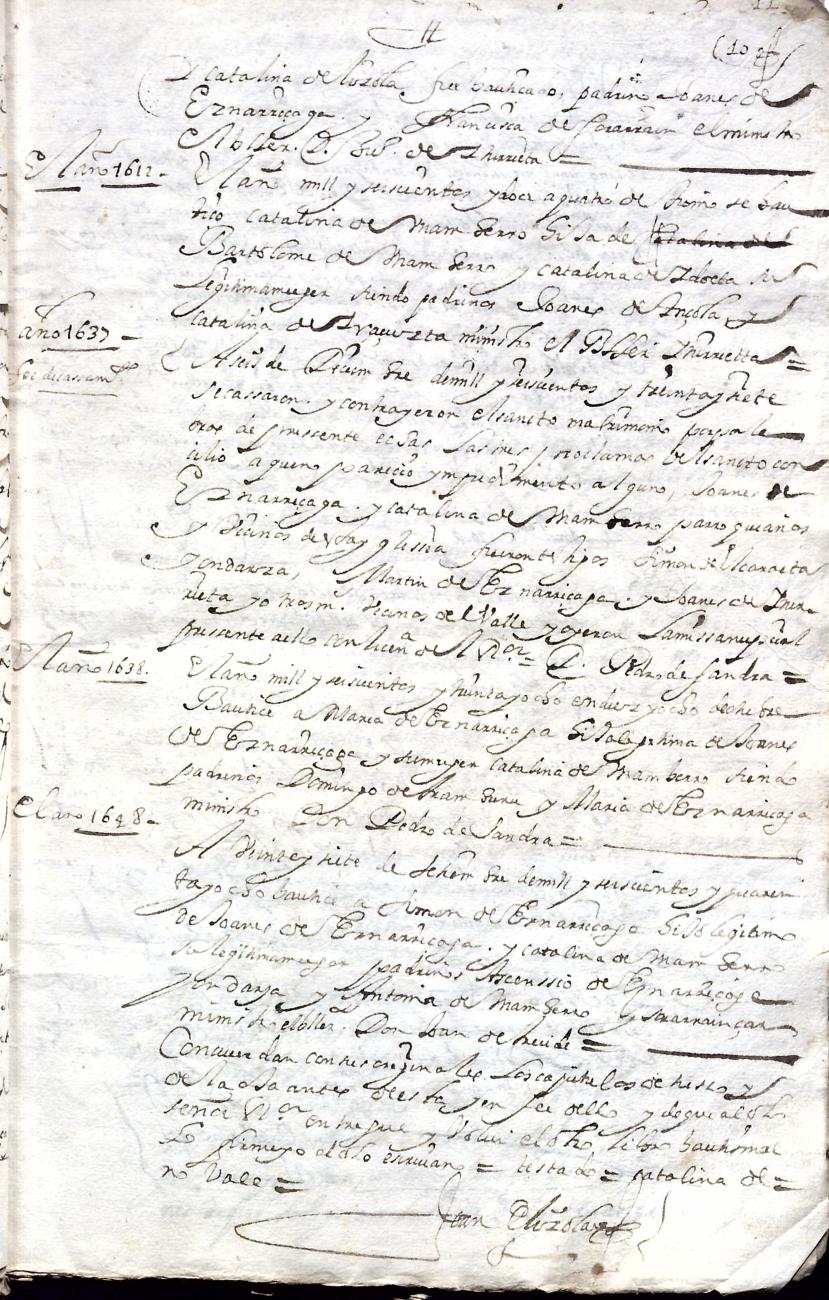 11
(10
Y catalina de loyola, fue bautiçado, padrino Joanes de
Eznarriçaga. y Francisca de el ministro
El bller. D. de Yturrieta =
El año 1612.
El año mill y seiscientos y doce a quatro de Junio se bau
tiço catalina de Mamberro hija de catalina de
Bartolome de Mamberro y catalina de Ydoeta su
Legitima muger siendo padrinos Joanes de Ançola y
catalina de ministro el Bller Yturrietta =
año 1637
fee de cassamto
A seis de Deciembre de mill y seiscientos y treinta y siete
se cassaron y contrayeron el sancto matrimonio por pala
bras de pressente echas las tres proclamas del sancto con
cilio a que no parecio ympedimento alguno, Joanes de
Eznarriçaga. y catalina de Mamberro parroquianos
y vecinos de esta yglessia fueron testigos Simon de Ycaraeta
yondarza, Martin de Eznarriçaga y Joanes de Ytur
rieta y otros m. vecinos del Valle y oyeron La missa nupcial
pressente a ello con licena del Vicº = D. Pedro de Sandra =
El año 1638.
El año mill y seiscientos y treinta y ocho en diez y ocho de otubre
Bautice a Maria de Eznarriçaga hija legitima de Joanes
de Eznarriçaga y su muger catalina de Mamberro siendo
padrinos Domingo de Aramburu y Maria de Eznarriçaga
ministro Don Pedro de Sandra =
El año 1648.
A veinte y siete de setiembre de mill y seiscientos y quaren
ta y ocho bautice a Simon de Eznarriçaga hijo legitimo
de Joanes de Eznarriçaga. y catalina de Mamberro
su legitima muger padrinos Ascenssio de Eznarriçaga
yondarza y Antonia de Mamberro y sorarrainçar
ministro el bller. Don Joan de =
Concuerdan con sus originales Los capitulos de susso y
de la oja antes desta y en fee dello y de que al dho
señor Vicº entregue y bolui el dho libro bautismal
Lo firme yo el dho escriuano = testado = catalina de =
no Vale =
Juan de loyola